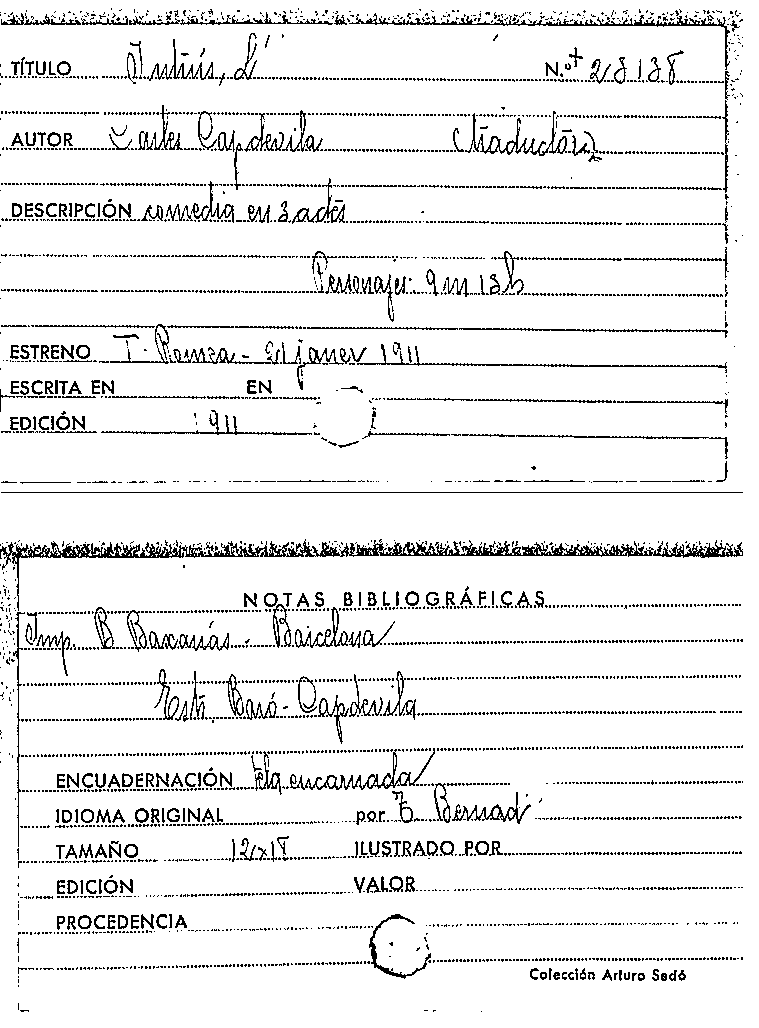 TÍTULO Intrús, L'
N.º 28138
AUTOR Carles Capdevila (traductor)
DESCRIPCIÓN comedia en 3 actes
Personajes: 9 m 13 h
ESTRENO T. Romea - janer 1911
ESCRITA EN EN
EDICIÓN 1911
NOTAS BIBLIOGRÁFICAS
Imp. B Baxarías. Barcelona
Estr. Baró-Capdevila
ENCUADERNACIÓN tela encarnada
IDIOMA ORIGINAL por T. Bernad
TAMAÑO 12x18 ILUSTRADO POR
EDICIÓN VALOR
PROCEDENCIA
Colección Arturo Sedó